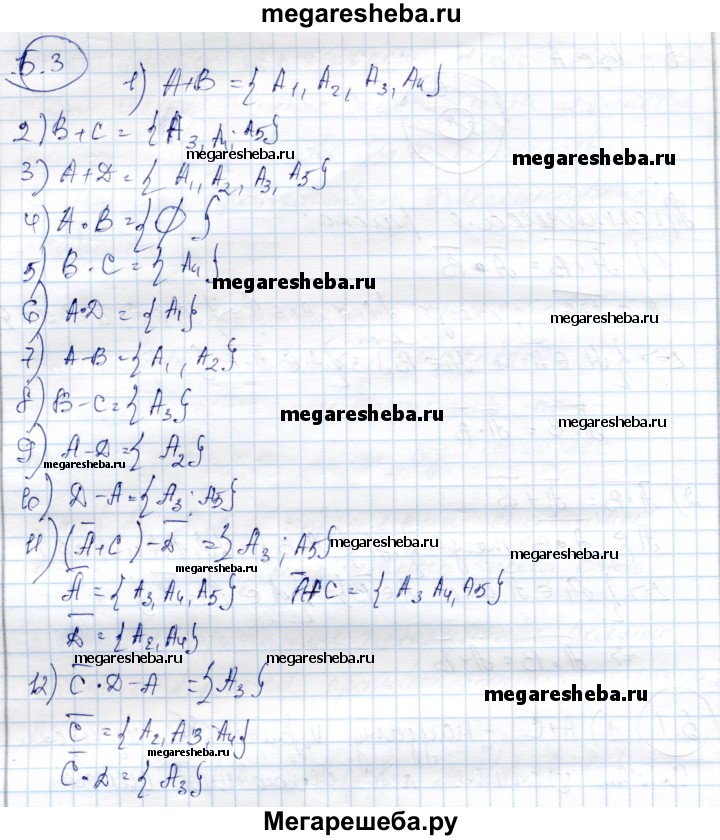 megaresheba.ru
5.3
1) A+B = { A1, A2, A3, A4}
2) B+C = {A3, A4; A5}
megaresheba.ru
megaresheba.ru
3) A+D = { A1, A2, A3, A5}
4) A·B = {Ø}
5) B·C = { A4}
megaresheba.ru
6) A·D = {A1}
7) A-B = {A1, A2}
8) B-C = {A3}
megaresheba.ru
9) A-D = { A2}
megaresheba.ru
10) D-A = {A3; A5}
11) (A̅+C)-D̅ = {A3; A5}
megaresheba.ru
megaresheba.ru
megaresheba.ru
A̅ = {A3, A4, A5} A̅+C = { A3 A4, A5}
D̅ = {A2, A4}
megaresheba.ru
megaresheba.ru
12) C̅·D-A = {A3}
megaresheba.ru
C̅ = { A2, A3, A4}
megaresheba.ru
C̅·D = {A3}
megaresheba.ru
Мегарешеба.ру